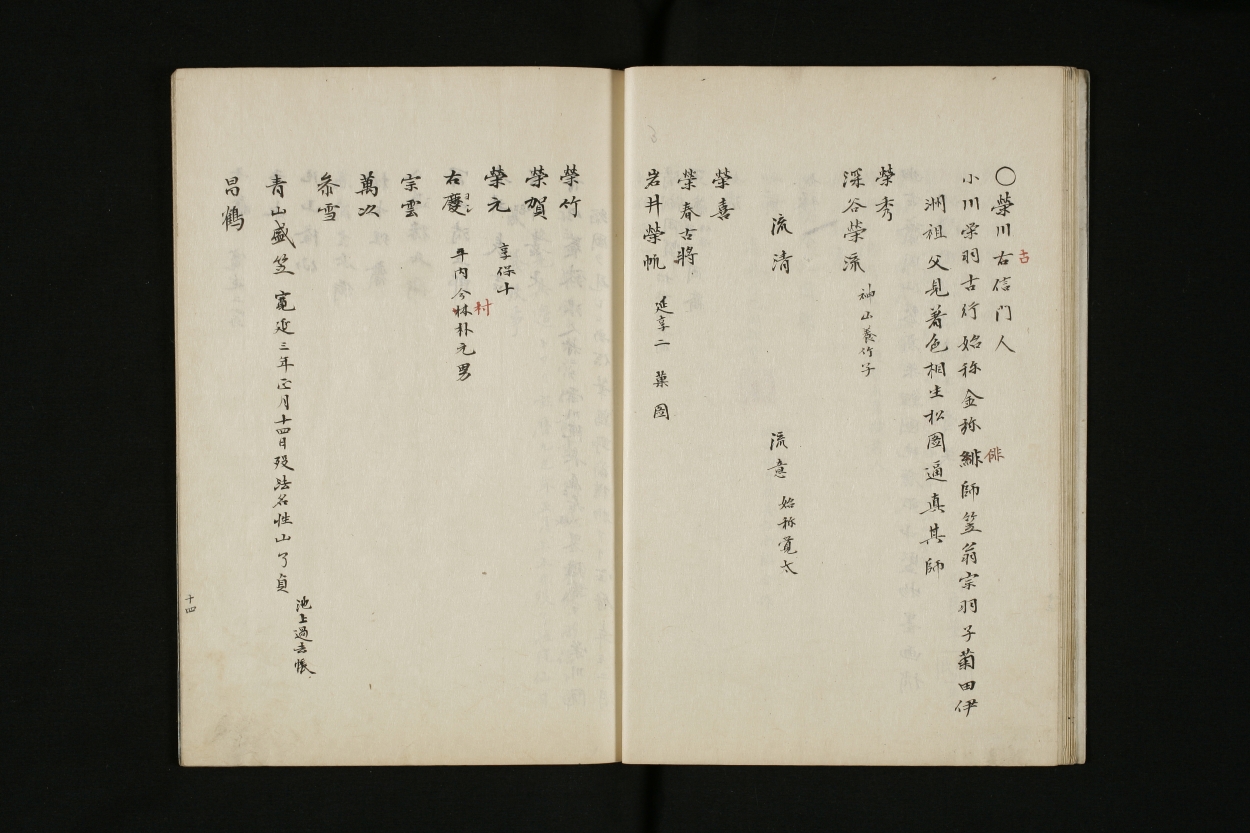 〇榮川右信門人
古
小川栄羽古行始称金弥緋師笠翁宗羽子菊田伊
俳
洲祖父見著色相生松図逼真其師
榮秀
深谷榮流 袖山養竹子
流清 流意 始称覚太
榮喜
榮春古將
岩井榮帆 延享二 菓図
榮竹
榮賀
榮元 享保十
右慶 ヨシ 年内今林朴元男
村
宗雲
萬次
参雪
青山盛笠 寛延三年正月十四日歿法名性山了貞
池上過去帳
昌鶴
十四